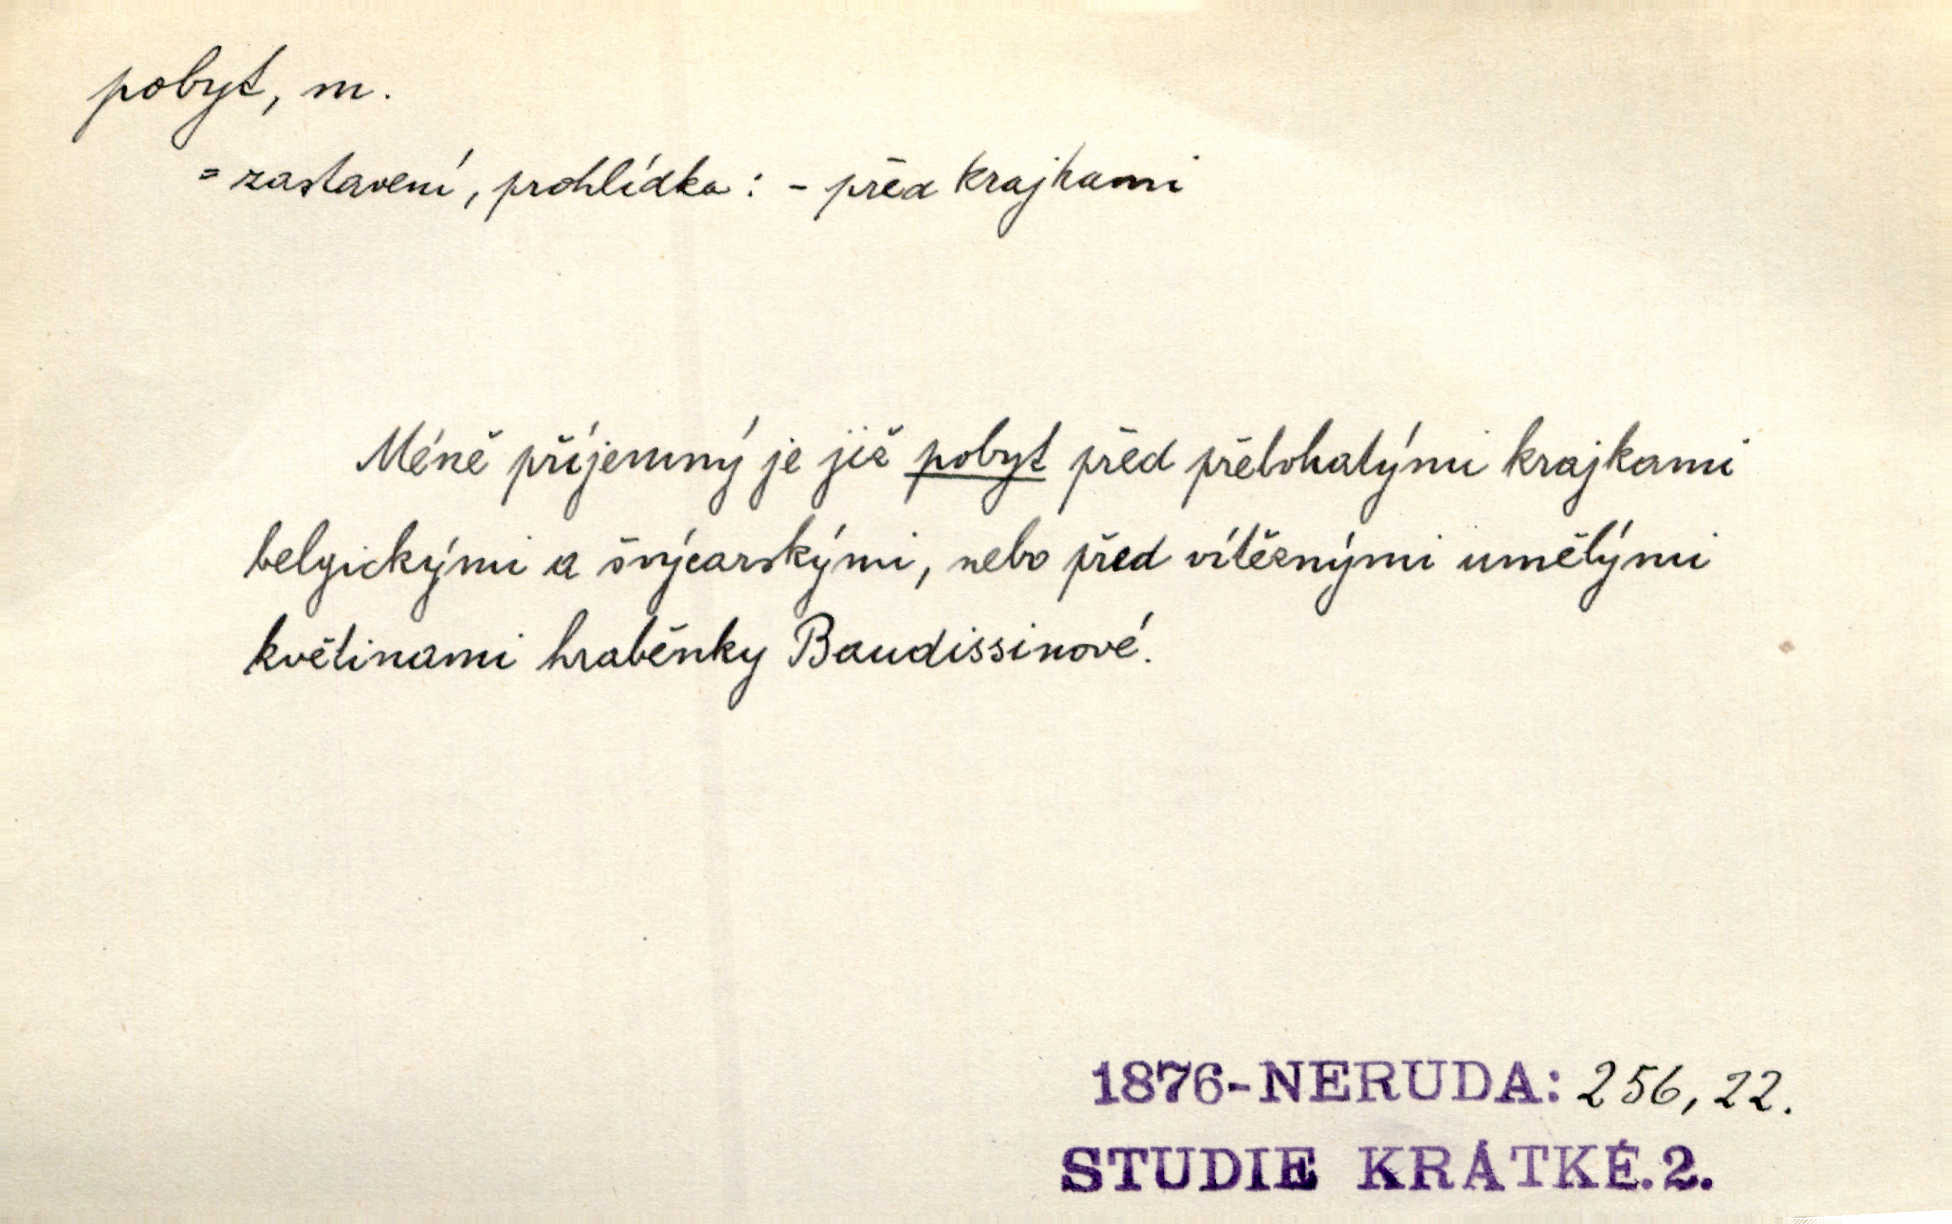 pobyt, m.
= zastavení, prohlídka: - před krajkami
Méně příjemný je již pobyt před přebohatými krajkami
belgickými a švýcarskými, nebo před vítěznými umělými
květinami hraběnky Baudissinové.
1876-NERUDA: 256, 22.
STUDIE KRÁTKÉ. 2.